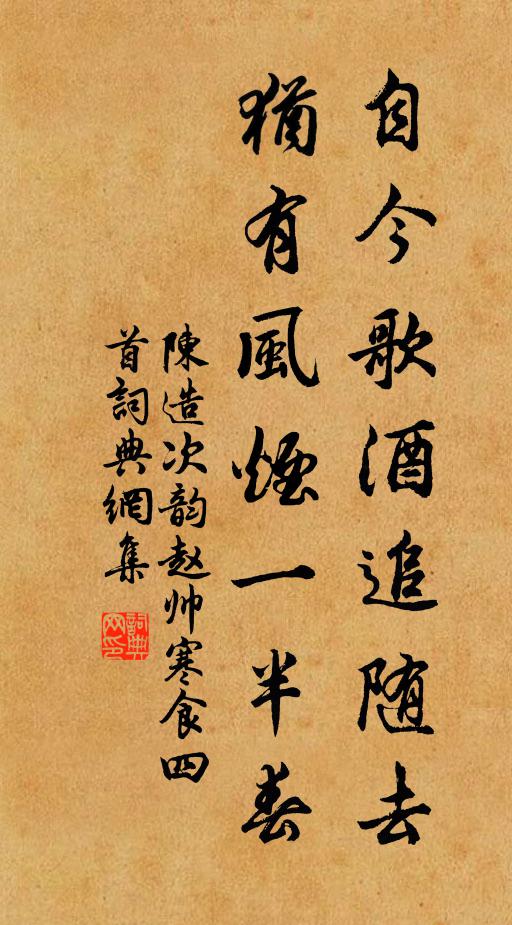 自今歌酒追随去
猶有風煙一半春
陳造次韵赵帅寒食四
首詞典網集
詞典网印